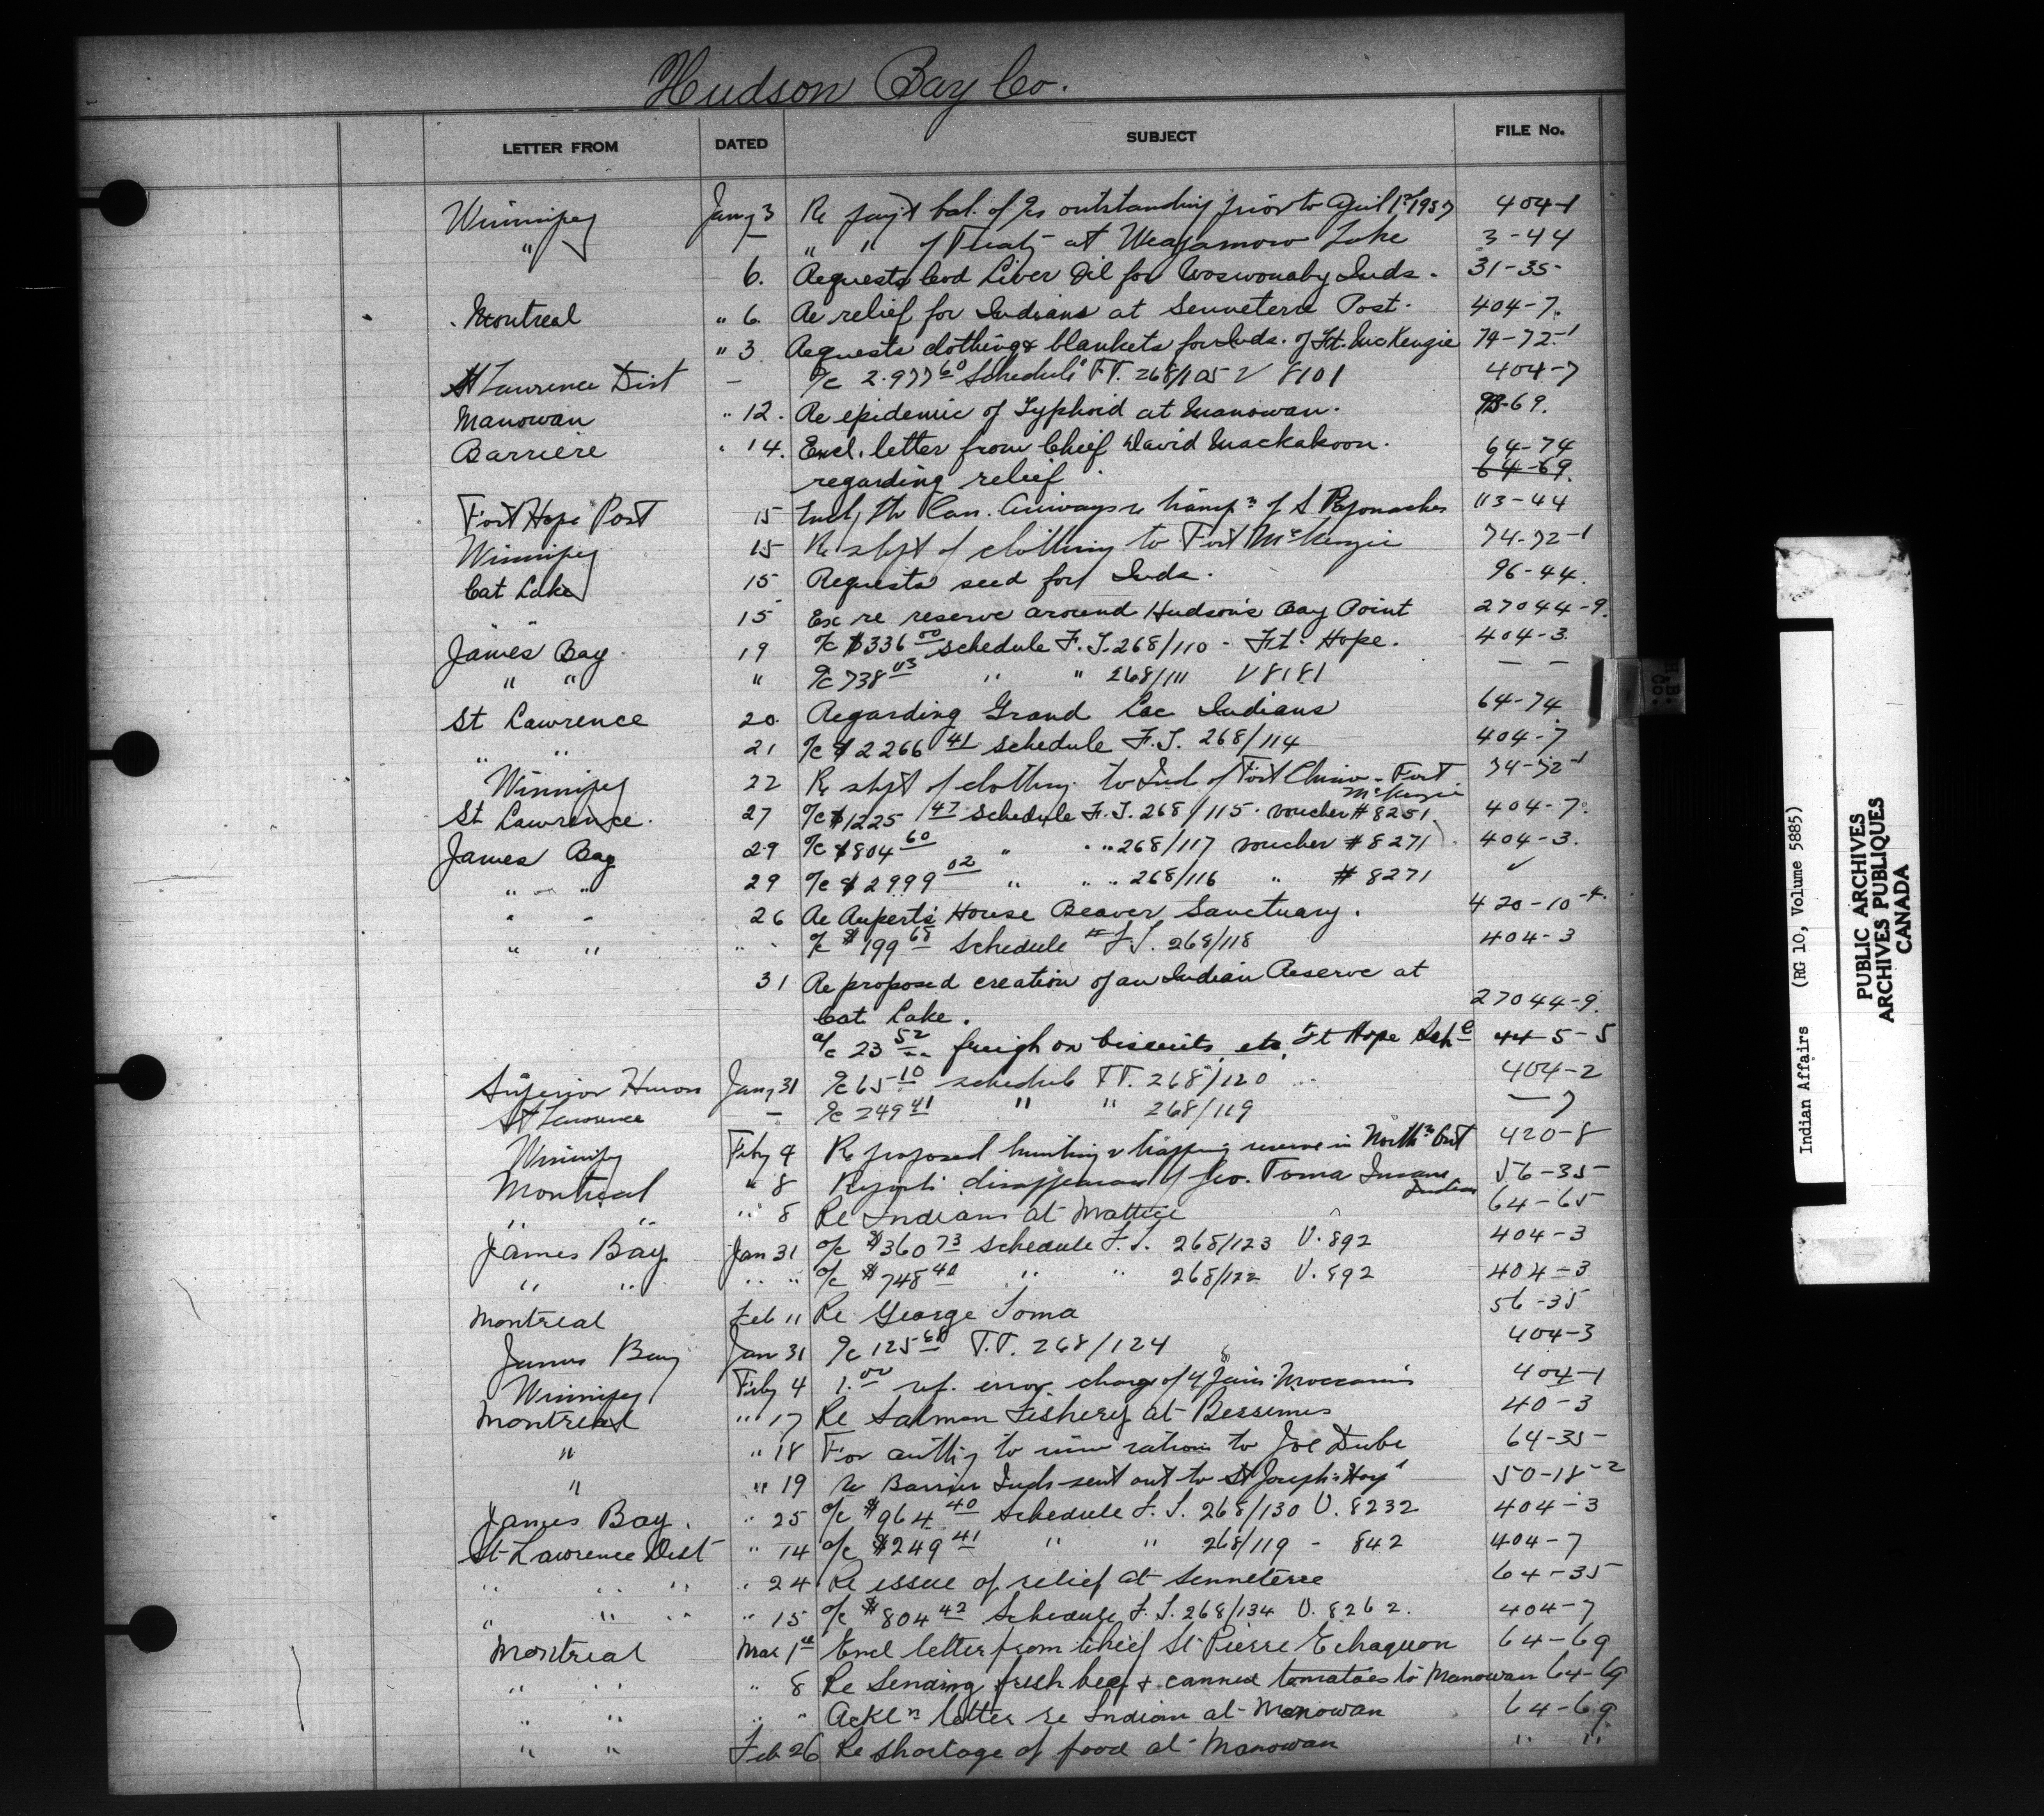 Hudson Bay Co.
LETTER FROM DATED SUBJECT FILE No.
Winnipeg Jany 3 Re paym't bal. of a/cs outstanding prior to April 1st 1937 404-1
" — " " of Treaty at Weagamow Lake 3-44
6. Requests Cod Liver Oil for Woswonaby Inds. 31-35
Montreal " 6. Re relief for Indians at Senneterre Post. 404-7.
" 3 Requests clothing & blankets for Inds. of Ft. McKenzie 74-72-1
St Lawrence Dist — a/c 2.977 60 Schedule FT. 268/105 V 8101 404-7
Manowan " 12. Re epidemic of Typhoid at Manowan. 93-69.
Barriere " 14. Encl. letter from Chief David Mackakoon. 64-74
regarding relief 64-69.
Fort Hope Post 15 Can. Airways re transp'n of S 113-44
Winnipeg 15 Re shpt of clothing to Fort McKenzie 74-72-1
Cat Lake 15 Requests seed for Inds. 96-44.
" " 15 Ex re reserve around Hudson's Bay Point 27044-9.
James Bay 19 a/c $336 00 schedule F.T. 268/110 - Ft. Hope. 404-3.
" " " a/c 738 03 " " 268/111 V 8181 — —
St Lawrence 20. Regarding Grand Lac Indians 64-74
" " 21 a/c $2266 41 schedule F.T. 268/114 404-7
Winnipeg 22 Re shpt of clothing to Ind of Fort Chimo - Fort 74-72-1
McKenzie
St Lawrence. 27 a/c $1225 47 schedule F.T. 268/115. voucher #8251. 404-7.
James Bay 29 a/c $804 60 " " " 268/117 voucher #8271 404-3.
" " 29 a/c $2999 02 " " " 268/116 " #8271 ✓
" " 26 Re Rupert's House Beaver Sanctuary. 420-10-4.
" " " " a/c $199 68 Schedule F.T. 268/118 404-3
31 Re proposed creation of an Indian Reserve at
Cat Lake. 27044-9.
a/c 23 52 freigh on biscuits, etc, Ft Hope 44-5-5
Superior Huron Jany 31 a/c 65 10 schedule FT. 268/120 404-2
St Lawrence — a/c 249 41 " " 268/119 — 7
Winnipeg Feby 4 Re proposed hunting & trapping reserve in North'n Ont 420-8
Montreal " 8 Reports disappearance of Geo. Toma Insane 56-35
Indian
" " " 8 Re Indians at Mattice 64-65
James Bay Jan 31 a/c $360 73 schedule F.T. 268/123 V. 892 404-3
" " " " a/c $748 40 " " 268/122 V. 892 404-3
Montreal Feb 11 Re George Toma 56-35
James Bay Jan 31 a/c 125 68 F.T. 268/124 404-3
Winnipeg Feby 4 1.00 ref. error charge of 4 pairs Moccasins 404-1
Montreal " 17 Re Salmon Fishery at Bersimis 40-3
" " 18 For auth'y to issue rations to Joe Dube 64-35
" " 19 re Barrier Inds sent out to St Joseph's Hosp'l 50-18-2
James Bay. " 25 a/c $964 40 Schedule F.T. 268/130 V. 8232 404-3
St Lawrence Dist " 14 a/c $249 41 " " 268/119 - 842 404-7
" " " " 24 Re issue of relief at Senneterre 64-35
" " " " 15 a/c $804 42 Schedule F.T. 268/134 V. 8262. 404-7
Montreal Mar 1st Encl letter from Chief St Pierre Echaquon 64-69
" " " 8 Re Sending fresh beef & canned tomatoes to Manowan 64-69
" " " " Ackl'n letter re Indian at Manowan 64-69
" " Feb 26 Re shortage of food at Manowan " "
Indian Affairs (RG 10, Volume 5885)
PUBLIC ARCHIVES
ARCHIVES PUBLIQUES
CANADA